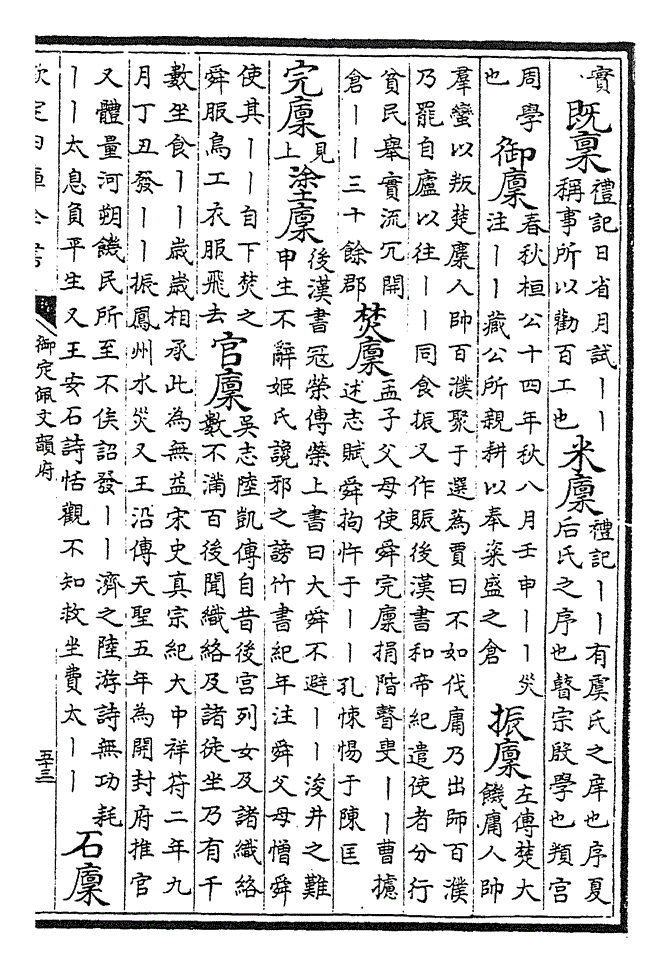 實
既稟
禮記日省月試丨丨
稱事所以勸百工也
米廩
禮記丨丨有虞氏之庠也序夏
后氏之序也瞽宗殷學也頖宮
周學
也
御廩
春秋桓公十四年秋八月壬申丨丨災
注丨丨藏公所親耕以奉粢盛之倉
振廩
左傳楚大
饑庸人帥
羣蠻以叛楚麇人帥百濮聚于選蒍賈曰不如伐庸乃出師百濮
乃罷自廬以往丨丨同食振又作賑後漢書和帝紀遣使者分行
貧民舉實流冗開
倉丨丨三十餘郡
焚廩
孟子父母使舜完廩捐階瞽叟丨丨曹攄
述志賦舜拘忤于丨丨孔悚惕于陳匡
完廩
見
上
塗廩
後漢書冦榮傳榮上書曰大舜不避丨丨浚井之難
申生不辭姬氏讒邪之謗竹書紀年注舜父母憎舜
使其丨丨自下焚之
舜服鳥工衣服飛去
官廩
吳志陸凱傳自昔後宮列女及諸織絡
數不滿百後聞織絡及諸徒坐乃有千
數坐食丨丨歲歲相承此為無益宋史真宗紀大中祥符二年九
月丁丑發丨丨振鳳州水災又王沿傳天聖五年為開封府推官
又體量河朔饑民所至不俟詔發丨丨濟之陸游詩無功耗
丨丨太息負平生又王安石詩恬觀不知救坐費太丨丨
石廩
欽定四庫全書
御定佩文韻府
五十三